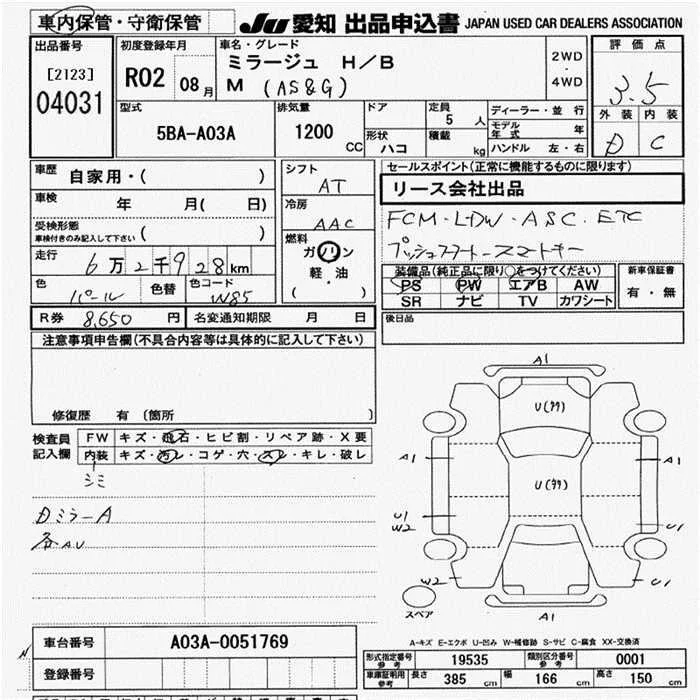 車内保管・守衛保管
JU 愛知 出品申込書 JAPAN USED CAR DEALERS ASSOCIATION
出品番号
[2123]
04031
初度登録年月
R02 08月
車名・グレード
ミラージュ H/B
M (AS&G)
2WD
・
4WD
評価点
3.5
外装 内装
D C
型式
5BA-A03A
排気量
1200 CC
ドア
形状
ハコ
定員
5 人
積載
kg
ディーラー・並行
モデル年式 年
ハンドル 左・右
車歴 自家用・( )
車検 年 月( 日)
受検形態
車検付きのみ記入して下さい ( )
走行 6万2千928km
色 パール 色替 色コード W85
シフト
AT
冷房
AAC
燃料
ガソリン
軽・油
( )
セールスポイント(正常に機能するものに限ります)
リース会社出品
FCM・LDW・ASC・ETC
プッシュスタート・スマートキー
装備品(純正品に限り○をつけてください)
PS PW エアB AW
SR ナビ TV カワシート
新車保証書
有・無
R券 8,650 円 名変通知期限 月 日
後日品
注意事項申告欄(不具合内容等は具体的に記入して下さい)
修復歴 有 (箇所 )
検査員記入欄
FW キズ・飛石・ヒビ割・リペア跡・X要
内装 キズ・汚レ・コゲ・穴・スレ・キレ・破レ
シミ
DミラーA
各AU
A1
U(タタ)
A1
A1
U(タタ)
U1
W2
U1
W2
U1
スペア
A1
A-キズ E-エクボ U-凹み W-補修跡 S-サビ C-腐食 XX-交換済
車台番号 A03A-0051769
登録番号
形式指定番号 参考 19535 類別区分番号 参考 0001
車庫証明用 参考 長さ 385 cm 幅 166 cm 高さ 150 cm